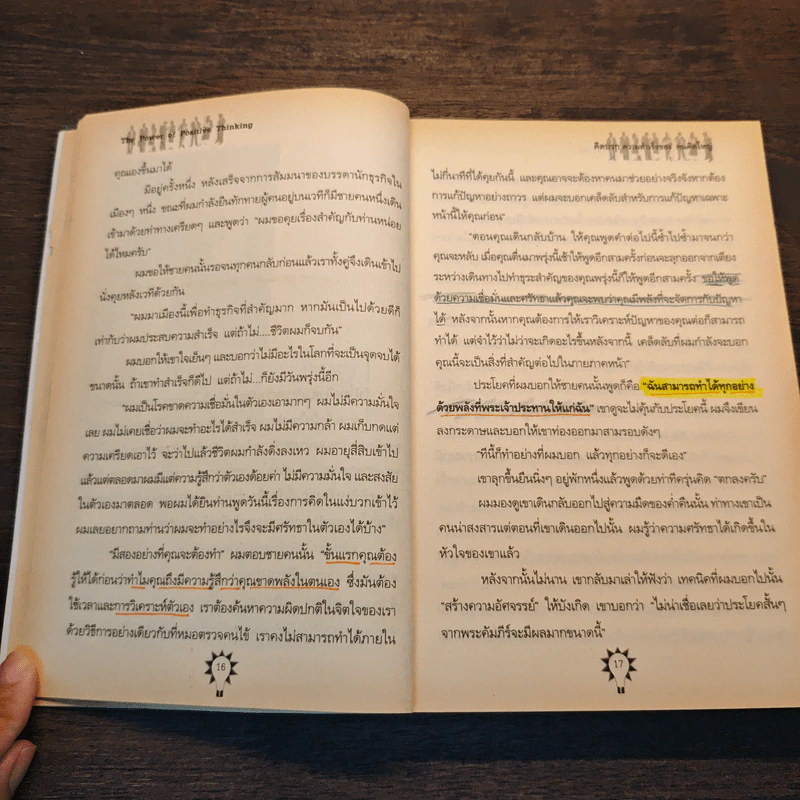 The Power of Positive Thinking
คุณเองขึ้นมาได้
มีอยู่ครั้งหนึ่ง หลังเสร็จจากการสัมมนาของบรรดานักธุรกิจใน
เมืองๆ หนึ่ง ขณะที่ผมกำลังยืนทักทายผู้คนอยู่บนเวทีก็มีชายคนหนึ่งเดิน
เข้ามาด้วยท่าทางเครียดๆ และพูดว่า “ผมขอคุยเรื่องสำคัญกับท่านหน่อย
ได้ไหมครับ”
ผมขอให้ชายคนนั้นรอจนทุกคนกลับก่อนแล้วเราทั้งคู่จึงเดินเข้าไป
นั่งคุยหลังเวทีด้วยกัน
“ผมมาเมืองนี้เพื่อทำธุรกิจที่สำคัญมาก หากมันเป็นไปด้วยดีก็
เท่ากับว่าผมประสบความสำเร็จ แต่ถ้าไม่...ชีวิตผมก็จบกัน”
ผมบอกให้เขาใจเย็นๆ และบอกว่าไม่มีอะไรในโลกที่จะเป็นจุดจบได้
ขนาดนั้น ถ้าเขาทำสำเร็จก็ดีไป แต่ถ้าไม่...ก็ยังมีวันพรุ่งนี้อีก
“ผมเป็นโรคขาดความเชื่อมั่นในตัวเองเอามากๆ ผมไม่มีความมั่นใจ
เลย ผมไม่เคยเชื่อว่าผมจะทำอะไรได้สำเร็จ ผมไม่มีความกล้า ผมเก็บกดแต่
ความเครียดเอาไว้ จะว่าไปแล้วชีวิตผมกำลังดิ่งลงเหว ผมอายุสี่สิบเข้าไป
แล้วแต่ตลอดมาผมมีแต่ความรู้สึกว่าตัวเองด้อยค่า ไม่มีความมั่นใจ และสงสัย
ในตัวเองมาตลอด พอผมได้ยินท่านพูดวันนี้เรื่องการคิดในแง่บวกเข้าไว้
ผมเลยอยากถามท่านว่าผมจะทำอย่างไรจึงจะมีศรัทธาในตัวเองได้บ้าง”
“มีสองอย่างที่คุณจะต้องทำ” ผมตอบชายคนนั้น “ขั้นแรกคุณต้อง
รู้ให้ได้ก่อนว่าทำไมคุณถึงมีความรู้สึกว่าคุณขาดพลังในตนเอง ซึ่งมันต้อง
ใช้เวลาและการวิเคราะห์ตัวเอง เราต้องค้นหาความผิดปกติในจิตใจของเรา
ด้วยวิธีการอย่างเดียวกับที่หมอตรวจคนไข้ เราคงไม่สามารถทำได้ภายใน
16
คิดบวก ความสำเร็จของ คนคิดใหญ่
ไม่กี่นาทีที่ได้คุยกันนี้ และคุณอาจจะต้องหาคนมาช่วยอย่างจริงจังหากต้อง
การแก้ปัญหาอย่างถาวร แต่ผมจะบอกเคล็ดลับสำหรับการแก้ปัญหาเฉพาะ
หน้านี้ให้คุณก่อน”
“ตอนคุณเดินกลับบ้าน ให้คุณพูดคำต่อไปนี้ซ้ำไปซ้ำมาจนกว่า
คุณจะหลับ เมื่อคุณตื่นมาพรุ่งนี้เช้าให้พูดอีกสามครั้งก่อนจะลุกออกจากเตียง
ระหว่างเดินทางไปทำธุระสำคัญของคุณพรุ่งนี้ก็ให้พูดอีกสามครั้ง ขอให้พูด
ด้วยความเชื่อมั่นและศรัทธาแล้วคุณจะพบว่าคุณมีพลังที่จะจัดการกับปัญหา
ได้ หลังจากนั้นหากคุณต้องการให้เราวิเคราะห์ปัญหาของคุณต่อก็สามารถ
ทำได้ แต่จำไว้ว่าไม่ว่าจะเกิดอะไรขึ้นหลังจากนี้ เคล็ดลับที่ผมกำลังจะบอก
คุณนี้จะเป็นสิ่งที่สำคัญต่อไปในภายภาคหน้า”
ประโยคที่ผมบอกให้ชายคนนั้นพูดก็คือ “ฉันสามารถทำได้ทุกอย่าง
ด้วยพลังที่พระเจ้าประทานให้แก่ฉัน” เขาดูจะไม่คุ้นกับประโยคนี้ ผมจึงเขียน
ลงกระดาษและบอกให้เขาท่องออกมาสามรอบดังๆ
“ทีนี้ก็ทำอย่างที่ผมบอก แล้วทุกอย่างก็จะดีเอง”
เขาลุกขึ้นยืนนิ่งๆ อยู่พักหนึ่งแล้วพูดด้วยท่าทีครุ่นคิด “ตกลงครับ”
ผมมองดูเขาเดินกลับออกไปสู่ความมืดของค่ำคืนนั้น ท่าทางเขาเป็น
คนน่าสงสารแต่ตอนที่เขาเดินออกไปนั้น ผมรู้ว่าความศรัทธาได้เกิดขึ้นใน
หัวใจของเขาแล้ว
หลังจากนั้นไม่นาน เขากลับมาเล่าให้ฟังว่า เทคนิคที่ผมบอกไปนั้น
“สร้างความอัศจรรย์” ให้บังเกิด เขาบอกว่า “ไม่น่าเชื่อเลยว่าประโยคสั้นๆ
จากพระคัมภีร์จะมีผลมากขนาดนี้”
17